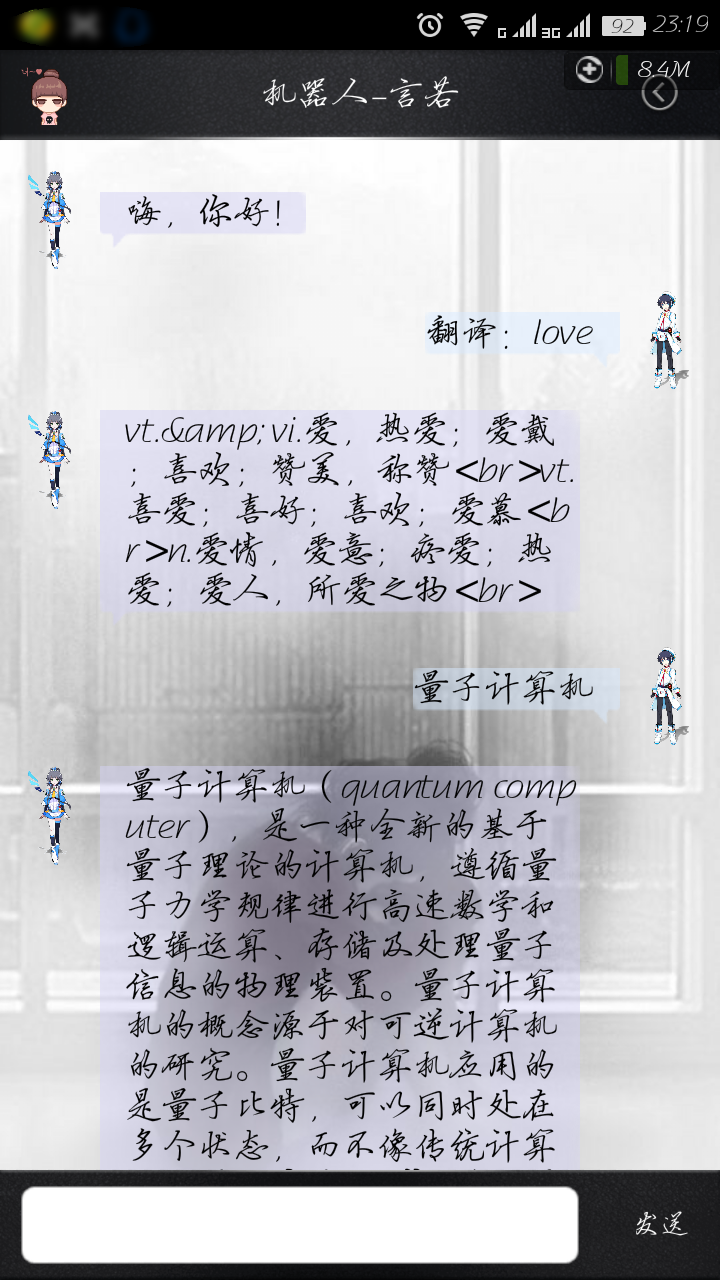 G 3G 92 23:19
8.4M
机器人-言若
嗨，你好！
翻译：love
vt.&amp;vi.爱，热爱；爱戴
；喜欢；赞美，称赞<br>vt.
喜爱；喜好；喜欢；爱慕<b
r>n.爱情，爱意；疼爱；热
爱；爱人，所爱之物<br>
量子计算机
量子计算机（quantum comp
uter），是一种全新的基于
量子理论的计算机，遵循量
子力学规律进行高速数学和
逻辑运算、存储及处理量子
信息的物理装置。量子计算
机的概念源于对可逆计算机
的研究。量子计算机应用的
是量子比特，可以同时处在
多个状态，而不像传统计算
发送